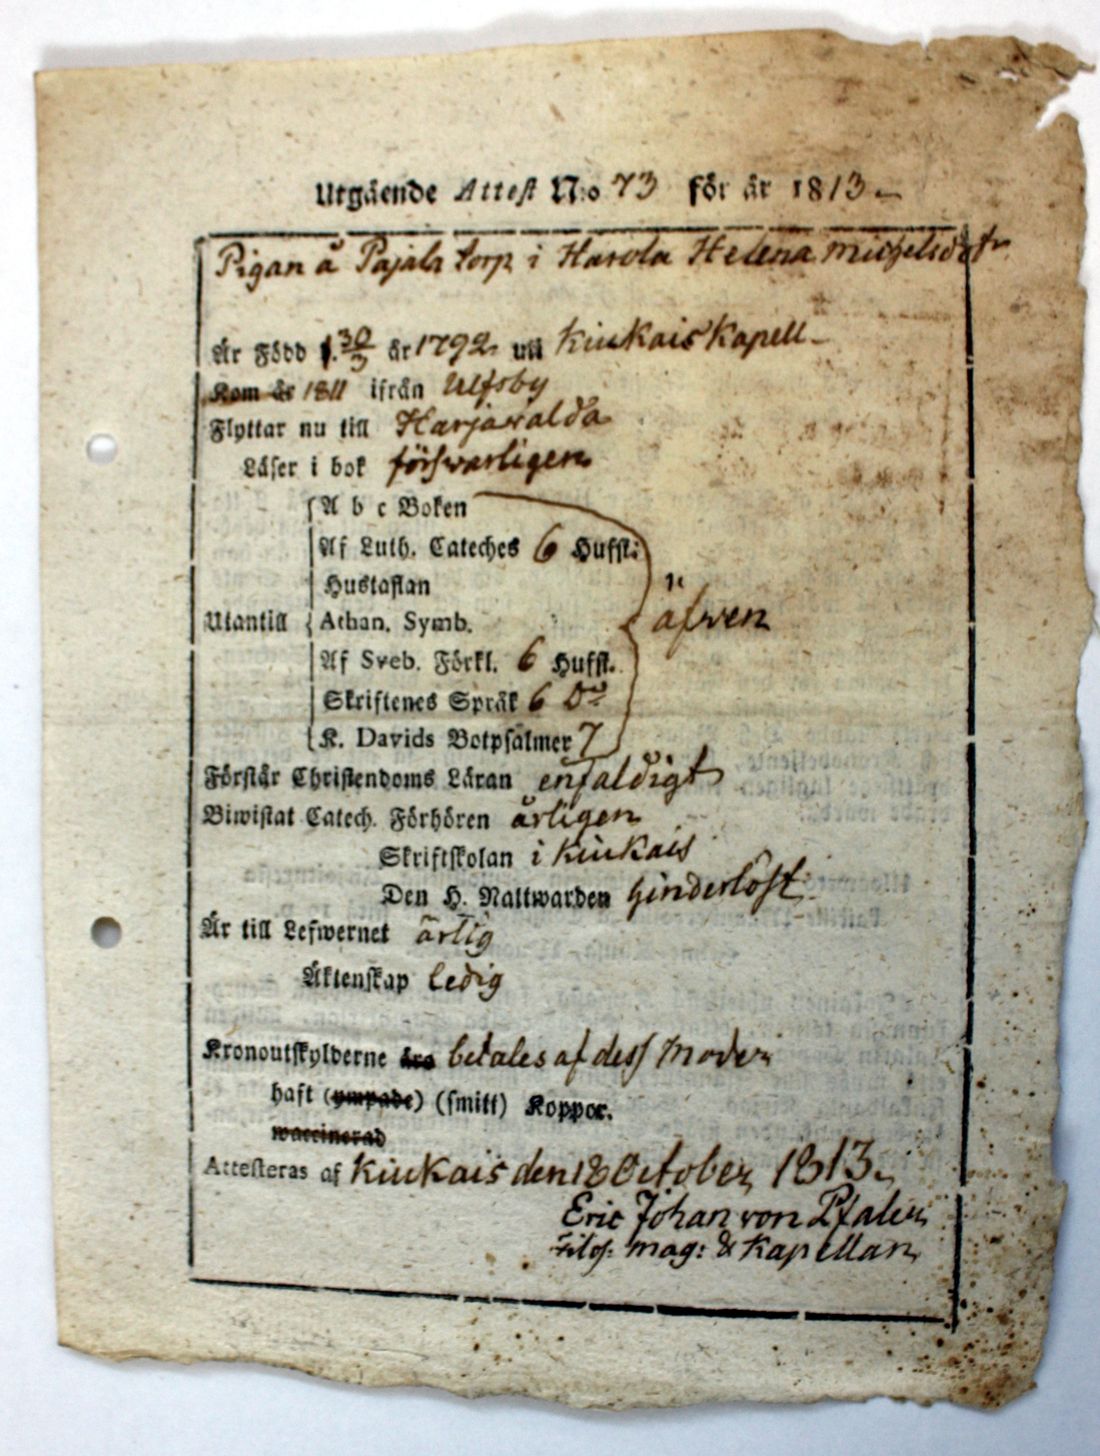 Utgående Attest N:o 73 för år 1813.
Pigan å Pajala torp i Harola Helena Michelsdotr
Är Född d. 30/3 år 1792. uti Kiukais Kapell
Kom år 1811 ifrån Ulfsby
Flyttar nu till Harjavalda
Läser i bok förswarligen
A b c Boken
Af Luth. Cateches 6 Hufst:
Hustaflan
Utantill Athan. Symb. äfwen
Af Sveb. Förkl. 6 Hufst.
Skriftenes Språk 6 Do
K. Davids Botpsalmer 7
Förstår Christendoms Läran enfaldigt
Biwistat Catech. Förhören årligen
Skriftskolan i Kiukais
Den H. Nattwarden hinderlöst
Är till Lefwernet ärlig
Äktenskap ledig
Kronoutskylderne äro betales af dess Moder
haft (ympade) (smitt) Koppor.
waccinerad
Attesteras af Kiukais den 18 October 1813.
Eric Johan von Pfaler
Filos: mag: & Kapellan